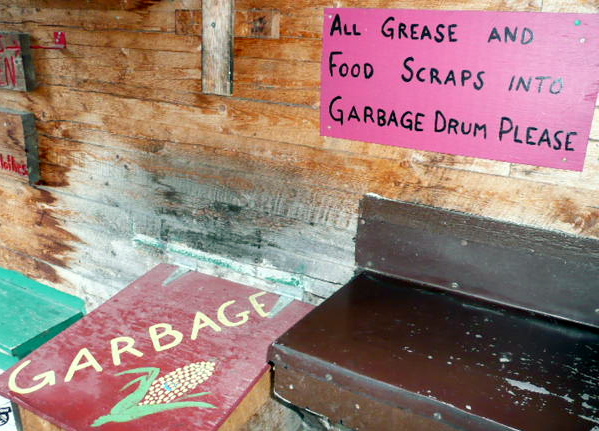 All Grease and
Food Scraps into
Garbage Drum Please
GARBAGE